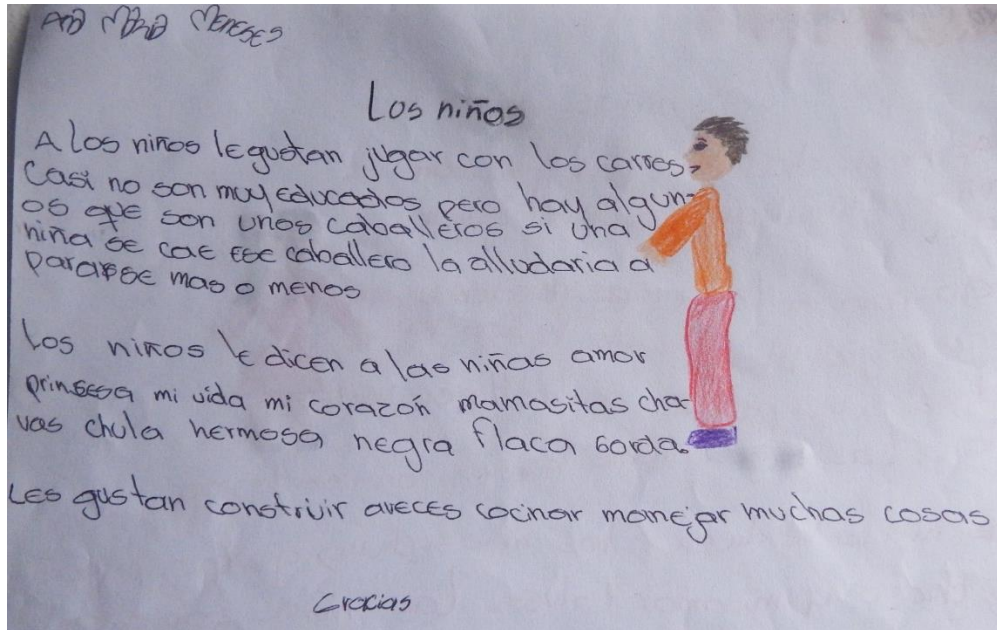 Ana María Meneses
Los niños
A los niños le gustan jugar con los carros
Casi no son muy educados pero hay algun-
os que son unos caballeros si una
niña se cae ese caballero la alludaria a
pararse mas o menos
Los niños le dicen a las niñas amor
prinsesa mi vida mi corazón mamasitas cha-
vas chula hermosa negra flaca gorda.
Les gustan construir aveces cocinar manejar muchas cosas
Gracias